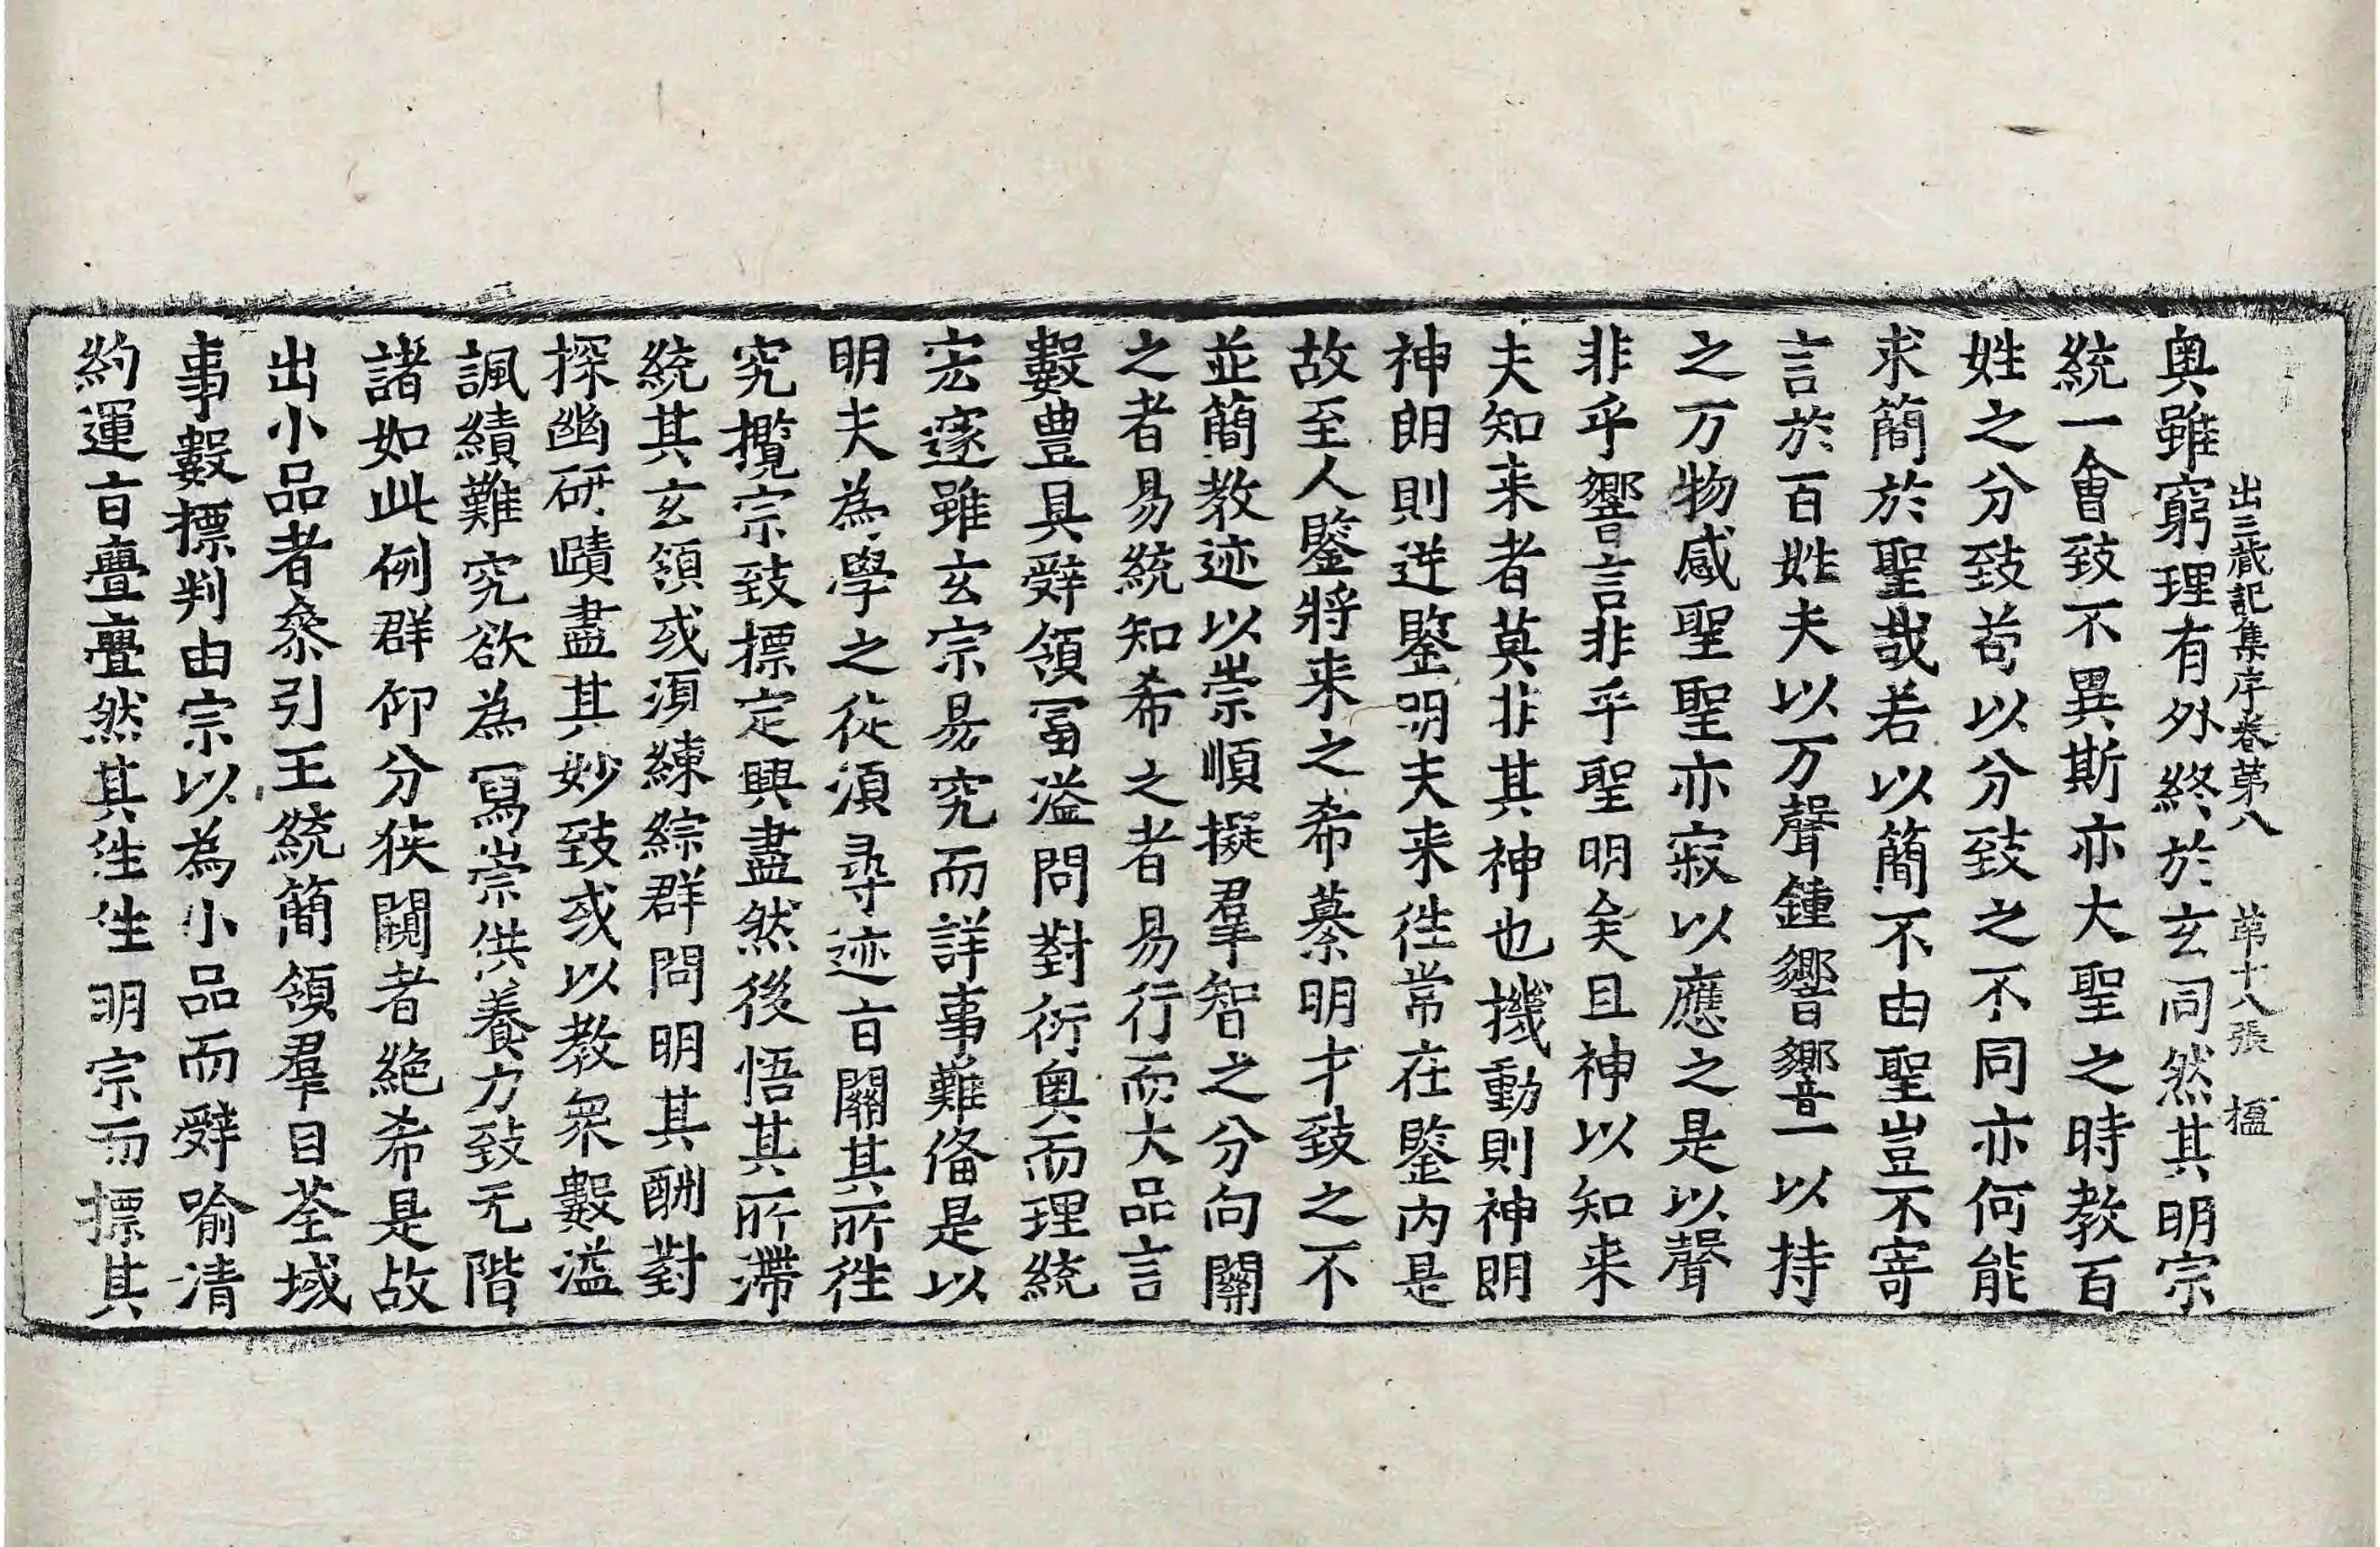 出三藏記集序卷第八　第十八張　楹
奥雖窮理有外終於玄同然其明宗
統一會致不異斯亦大聖之時教百
姓之分致苟以分致之不同亦何能
求簡於聖哉若以簡不由聖豈不寄
言於百姓夫以万聲鍾響響一以持
之万物感聖聖亦寂以應之是以聲
非乎響言非乎聖明矣且神以知来
夫知来者莫非其神也機動則神朗
神朗則逆鑒明夫来往常在鑒内是
故至人鑒將来之希纂明才致之不
並簡教迹以崇順擬羣智之分向關
之者易統知希之者易行而大品言
數豊具辝領冨溢問對衍奥而理統
宏邃雖玄宗易究而詳事難俻是以
明夫為學之徒湏尋迹旨關其所往
究攬宗致摽定興盡然後悟其所滯
統其玄領或湏練綜群問明其酬對
探幽研賾盡其妙致或以教衆數溢
諷績難究欲為冩崇供養力致无階
諸如此例群仰分狭闚者絶希是故
出小品者叅引王統簡領羣目荃域
事數摽判由宗以為小品而辝喻清
約運旨亹亹然其往往明宗而摽其